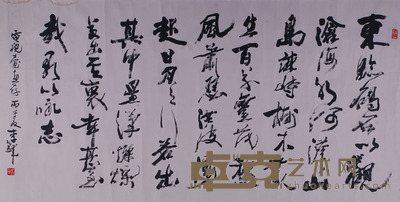 東臨碣石以觀
滄海水何澹澹山
島竦峙樹木叢
生百草豐茂秋
風蕭瑟洪波湧
起日月之行若出
其中星漢燦爛
若出其裏幸甚至
哉歌以詠志
卓克艺术网